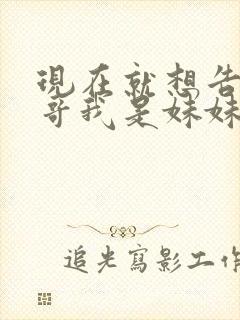 現在就想告
哥我是妹妹
追光寫影工作